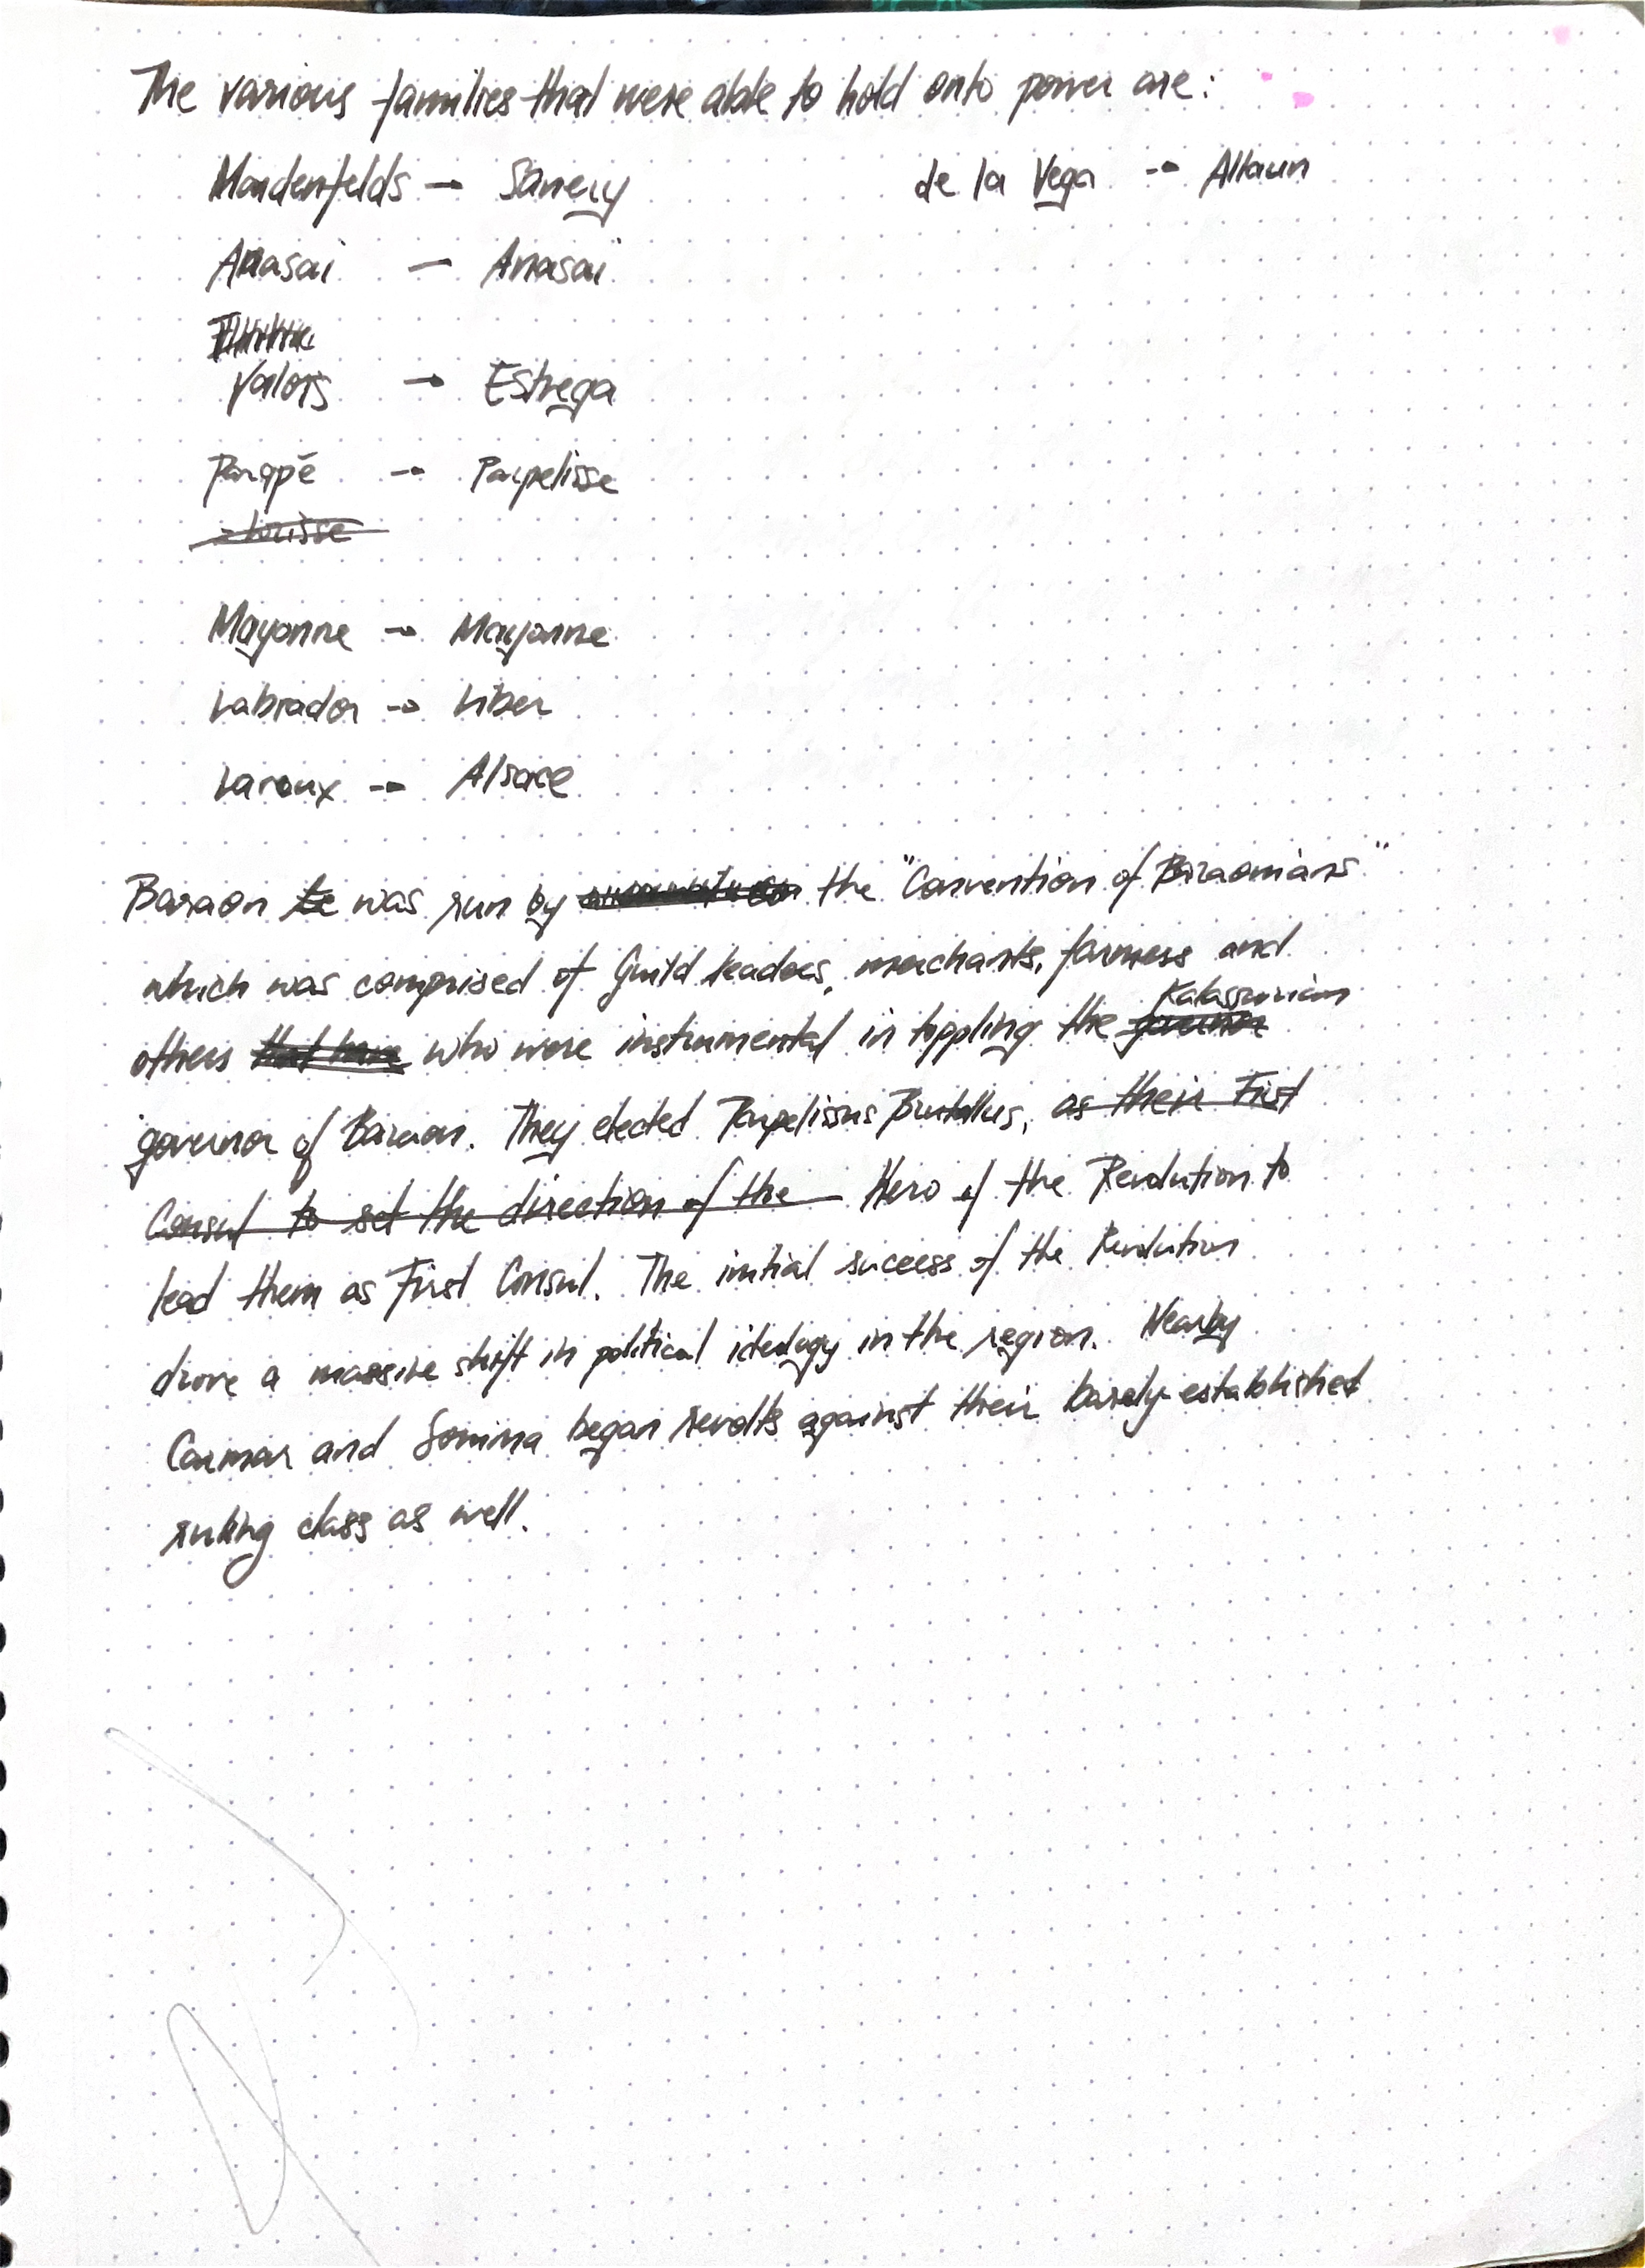 The various families that were able to hold onto power are:
Mardenfelds → Sanery
de la Vega → Allaun
Anasai — Anasai
Valois → Estrega
Parqpé → Parpelisse
Mayonne → Mayonne
Labrador → Liber
Laroux → Alsace
Baraon was run by the "Convention of Baraomians"
which was comprised of Guild leadoes, merchants, farmers and
Kalassurian
others who were instrumental in toppling the governor
governor of Baraon. They elected Parpelissus Brutallus, as their First
Consul to set the direction of the Hero of the Revolution to
lead them as First Consul. The initial success of the Revolution
drove a massive shift in political ideology in the region. Nearby
Carmar and Somma began revolts against their barely-established
ruling class as well.